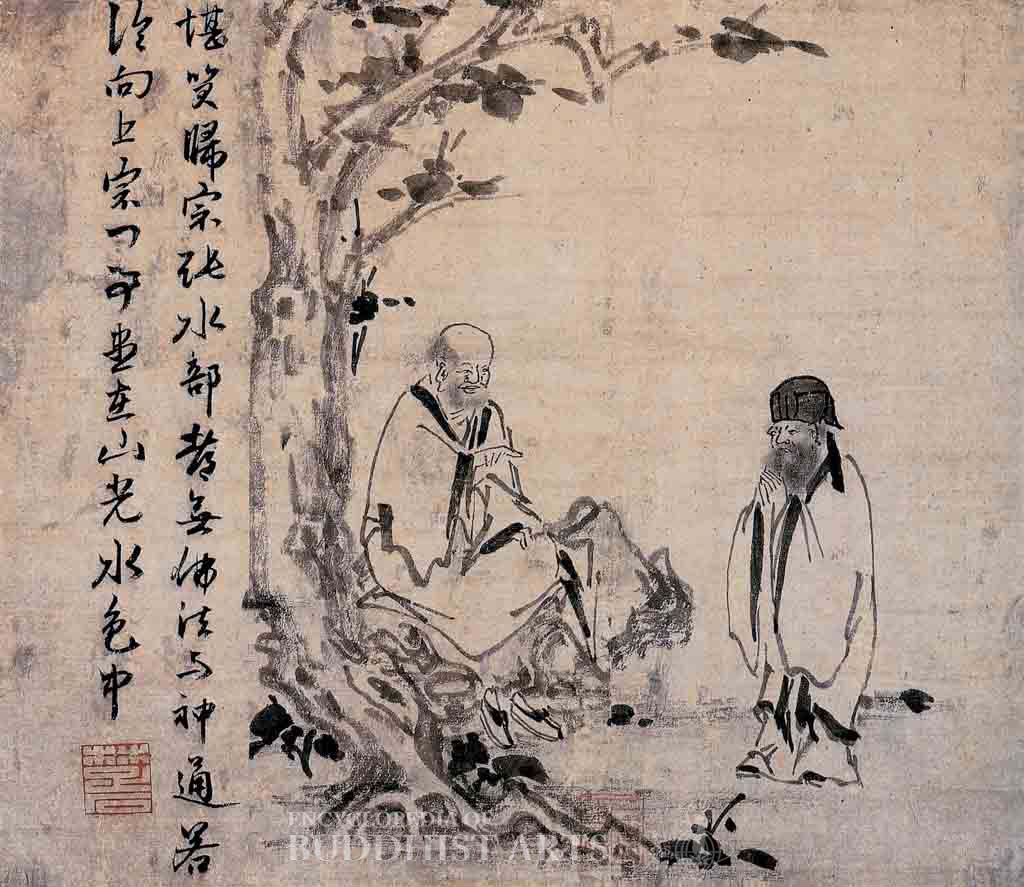 堪笑歸宗張水部都無佛法与神通若
論向上宗門事盡在山光水色中
ENCYCLOPEDIA OF
BUDDHIST ARTS